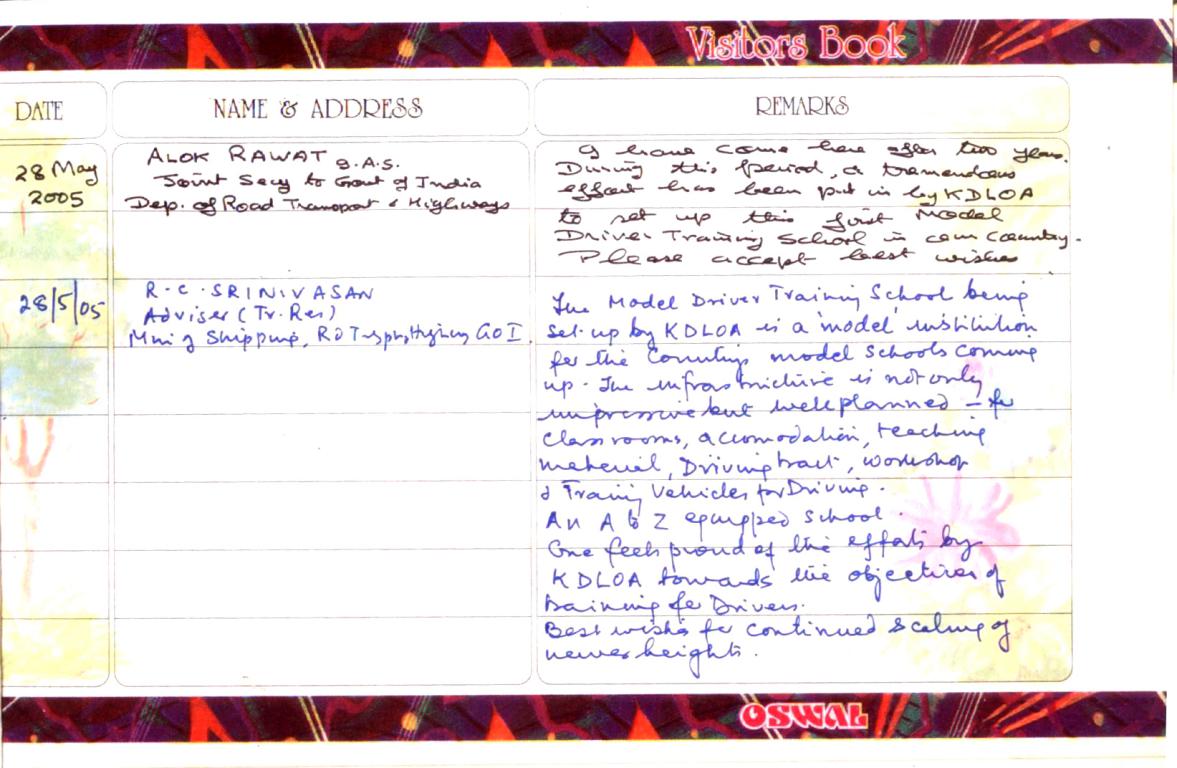 Visitors Book
DATE
NAME & ADDRESS
REMARKS
28 May
2005
ALOK RAWAT I.A.S.
Joint Secy to Govt of India
Dep. of Road Transport & Highways
I have come here after two years.
During this period, a tremendous
effort has been put in by KDLOA
to set up this first Model
Driver Training School in our Country.
Please accept best wishes
28/5/05
R.C. SRINIVASAN
Adviser (Tr. Res)
Min of Shipping, Rd Tspt, Highways GOI.
The Model Driver Training School being
set-up by KDLOA is a 'model' institution
for the Country's model schools coming
up. The infrastructure is not only
impressive but well planned – for
Class rooms, accomodation, teaching
material, Driving tract, workshop
& Training Vehicles for Driving.
An A to Z equipped school.
One feels proud of the efforts by
KDLOA towards the objectives of
training for Drivers.
Best wishes for continued scaling of
newer heights.
OSWAL